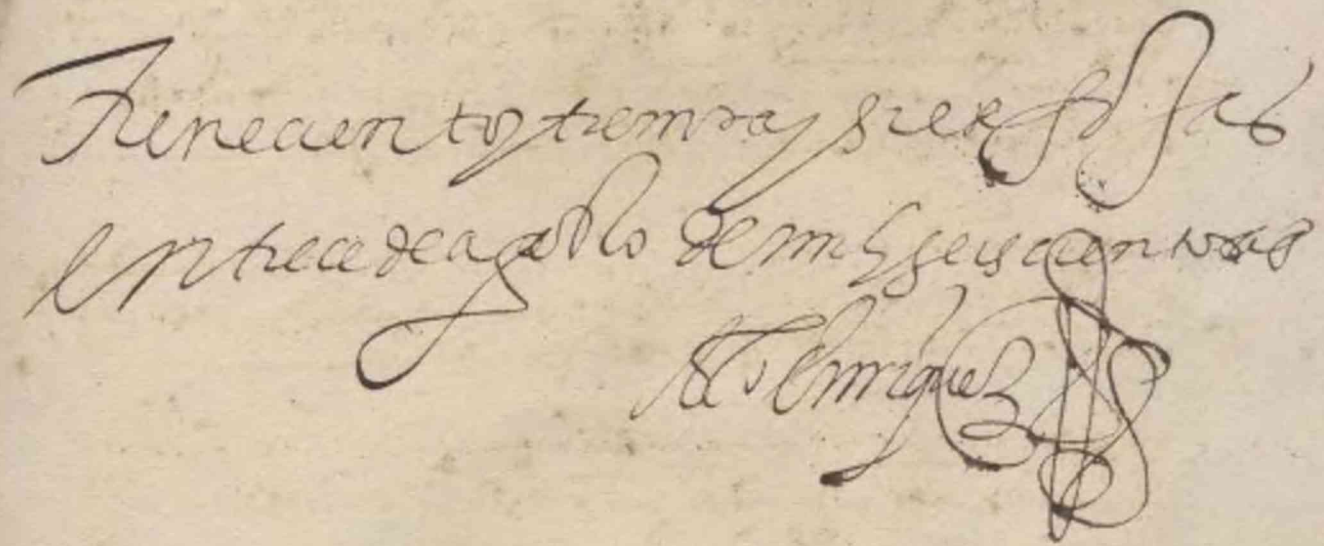 tiene ciento treinta y siete fojas
en trece de agosto de mil y seiscientos
Al.o Enrriquez